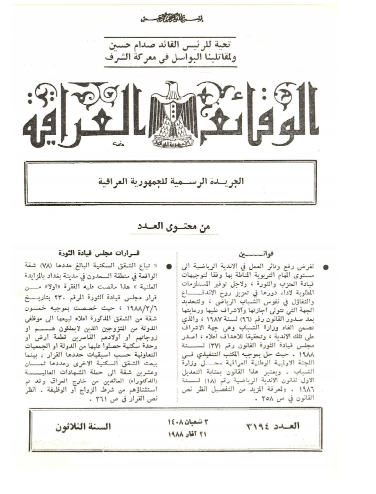 تحية للرئيس القائد صدام حسين
ولمقاتلينا البواسل في معركة الشرف
الوقائع العراقية
الجريدة الرسمية للجمهورية العراقية
من محتوى العدد
قوانين
لغرض رفع وتائر العمل في الاندية الرياضية الى
مستوى المهام التربوية المناطة بها وفقا لتوجيهات
قيادة الحزب والثورة ، ولاجل توفير المستلزمات
المطلوبة لاداء دورها في تعزيز روح الاندفاع
والتفاؤل في نفوس الشباب الرياضي ، ولتحديد
الجهة التي تتولى اجازتها والاشراف عليها ورعايتها
بعد صدور القانون رقم (٦٦) لسنة ١٩٨٧ ، والذي
تضمن الغاء وزارة الشباب وهي جهة الاشراف
على تلك الاندية ، وتحقيقا للاهداف اعلاه ، اصدر
مجلس قيادة الثورة القانون رقم (٣٧) لسنة
١٩٨٨ ، حيث حل بموجبه المكتب التنفيذي في
اللجنة الاولمبية الوطنية العراقية محل وزارة
الشباب . ويعتبر هذا القانون بمثابة التعديل
الاول لقانون الاندية الرياضية رقم (١٨) لسنة
١٩٨٦ ، ولمعرفة المزيد من التفصيل انظر نص
القانون في ص ٢٥٨ .
قرارات مجلس قيادة الثورة
« تباع الشقق السكنية البالغ عددها (٧٨) شقة
الواقعة في منطقة في مدينة بغداد بالمزايدة
العلنية » هذا مانصت عليه الفقرة «اولا» من
قرار مجلس قيادة الثورة المرقم ٢٣٠ بتاريخ
١٩٨٨/٣/٦ ، حيث خصصت بموجبه خمسون
شقة من الشقق المذكورة اعلاه لبيعها الى موظفي
الدولة من المتزوجين الذين لايملكون هم او
زوجاتهم او اولادهم القاصرين قطعة ارض او
وحدة سكنية حصلوا عليها من الدولة او الجمعيات
التعاونية حسب اسبقيات حددها القرار ، بينما
بيعت الشقق السكنية الاخرى وعددها ثمان
وعشرين شقة الى حملة الشهادات العالية
(الدكتوراه) العائدين من خارج العراق وقد تم
استثناؤهم من شرط الزواج او الوظيفة . انظر
نص القرار في ص ٢٦١ .
العدد ٣١٩٤
٣ شعبان ١٤٠٨
٢١ آذار ١٩٨٨
السنة الثلاثون